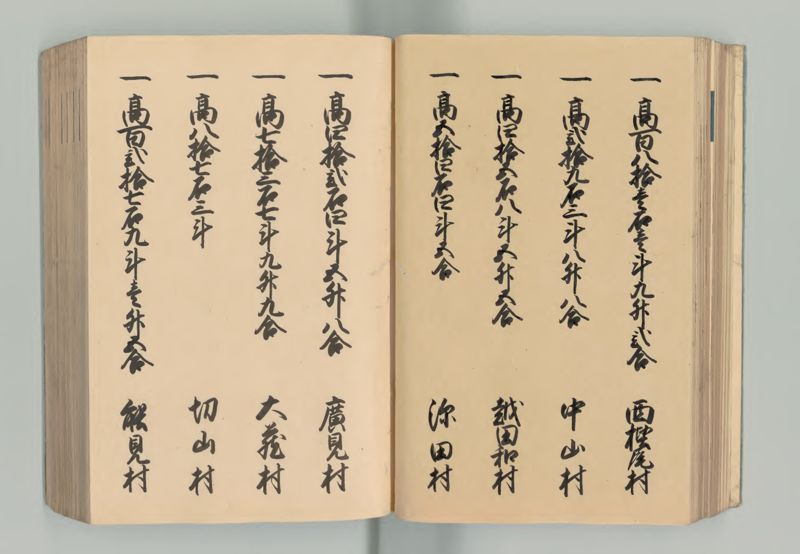 一 高百八拾壱石壱斗九升弐合 西樫尾村
一 高弐拾九石三斗八升八合 中山村
一 高四拾五石八斗五升五合 越田和村
一 高五拾四石四斗五合 深田村
一 高四拾弐石四斗五升八合 廣見村
一 高七拾三石七斗九升九合 大蔵村
一 高八拾七石三斗 切山村
一 高百弐拾七石九斗壱升五合 熊見村